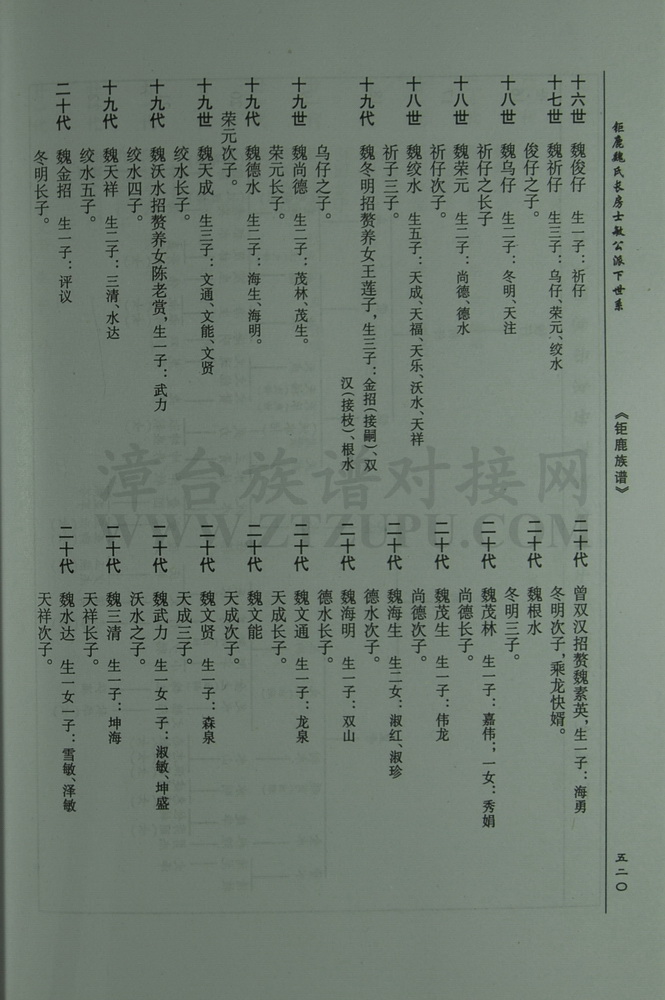 钜鹿魏氏长房士敏公派下世系
《钜鹿族谱》
五二〇
十六世 魏俊仔 生一子：祈仔
十七世 魏祈仔 生三子：乌仔、荣元、绞水
俊仔之子。
十八世 魏乌仔 生二子：冬明、天注
祈仔之长子
十八世 魏荣元 生二子：尚德、德水
祈仔次子。
十八世 魏绞水 生五子：天成、天福、天乐、沃水、天祥
祈子三子。
十九代 魏冬明招赘养女王莲子，生三子：金招（接嗣）、双
汉（接枝）、根水
乌仔之子。
十九世 魏尚德 生二子：茂林、茂生。
荣元长子。
十九代 魏德水 生二子：海生、海明。
荣元次子。
十九世 魏天成 生三子：文通、文能、文贤
绞水长子。
十九代 魏沃水招赘养女陈老赏，生一子：武力
绞水四子。
十九代 魏天祥 生二子：三清、水达
绞水五子。
二十代 魏金招 生一子：评议
冬明长子。
二十代 曾双汉招赘魏素英，生一子：海勇
冬明次子，乘龙快婿。
二十代 魏根水
冬明三子。
二十代 魏茂林 生一子：嘉伟；一女：秀娟
尚德长子。
二十代 魏茂生 生一子：伟龙
尚德次子。
二十代 魏海生 生二女：淑红、淑珍
德水次子。
二十代 魏海明 生一子：双山
德水长子。
二十代 魏文通 生一子：龙泉
天成长子。
二十代 魏文能
天成次子。
二十代 魏文贤 生一子：森泉
天成三子。
二十代 魏武力 生一女一子：淑敏、坤盛
沃水之子。
二十代 魏三清 生一子：坤海
天祥长子。
二十代 魏水达 生一女一子：雪敏、泽敏
天祥次子。
漳台族谱对接网
WWW.ZTZUPU.COM